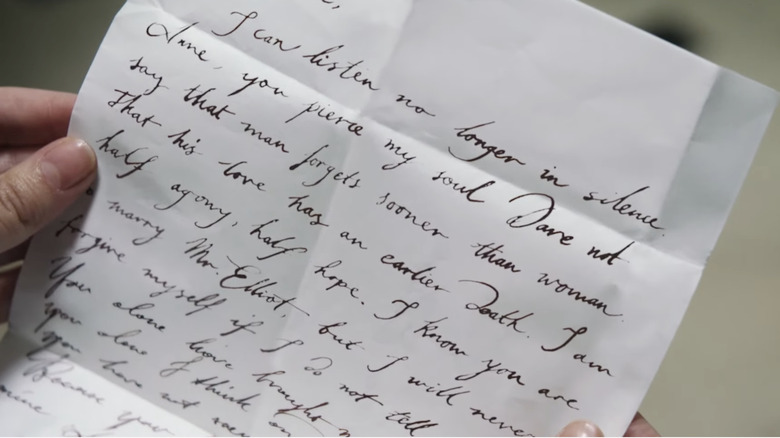 I can listen no longer in silence.
Anne, you pierce my soul Dare not
say that man forgets sooner than woman.
that his love has an earlier Death. I am
half agony, half hope. I know you are
marry Mr. Elliot, but I will never
forgive myself if I do not tell
You alone have brought
you alone I think
you have not
Because your